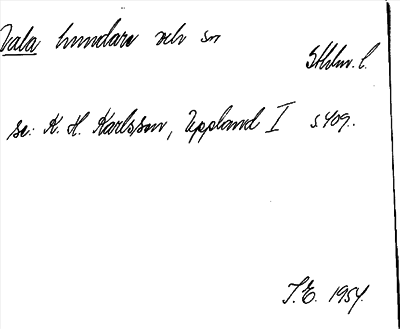 Vala hundare och sn
Sthlm. l.
se: K. H. Karlsson, Uppland I s 409.
J.E. 1954.